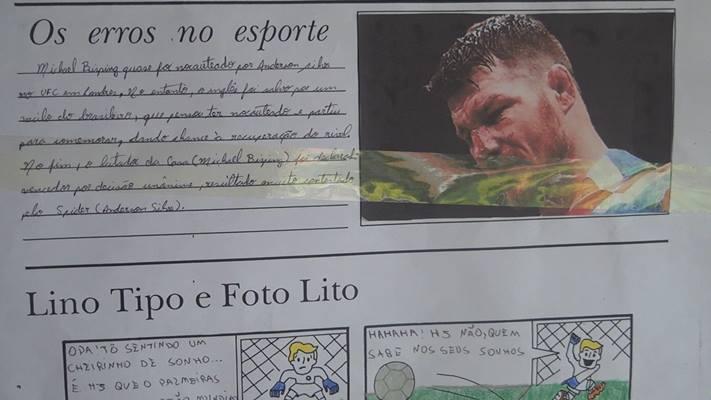 Os erros no esporte
Michael Bisping quase foi nocauteado por Anderson Silva
no UFC em Londres. No entanto, o inglês foi salvo por um
vacilo do brasileiro, que pensou ter nocauteado e partiu
para comemorar, dando chance à recuperação do rival.
No fim, o lutador da Casa (Michael Bisping) foi declarado
vencedor por decisão unânime, resultado muito contestado
pelo Spider (Anderson Silva).
Lino Tipo e Foto Lito
OPA! TÔ SENTINDO UM
CHEIRINHO DE SONHO...
É H3 QUE O PALMEIRAS
MUNDIAL
HAHAHA! H3 NÃO, QUEM
SABE NOS SEUS SONHOS